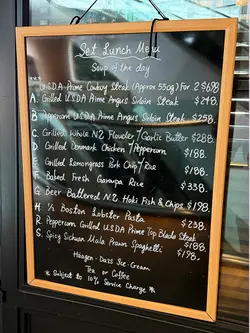 Set Lunch Menu
Soup of the day
USDA Prime Cowboy Steak (Approx 550g) For 2 $698
A. Grilled USDA Prime Angus Sirloin Steak $248.
B. Peppercorn USDA Prime Angus Sirloin Steak $258.
C. Grilled Whole NZ Flounder / Garlic Butter $288.
D. Grilled Denmark Chicken / Peppercorn $188.
E. Grilled Lemongrass Pork Chop / Rice $188.
F. Baked Fresh Rice $338.
G Beer Battered NZ Hoki Fish & Chips $198.
H. 1/2 Boston Lobster Pasta $238.
R. Peppercorn Grilled USDA Prime Top Blade Steak $188.
S. Spicy Sichuan Mala Prawn Spaghetti $198.
Häagen-Dazs Ice-Cream
Tea or Coffee
* Subject to 10% Service Charge *